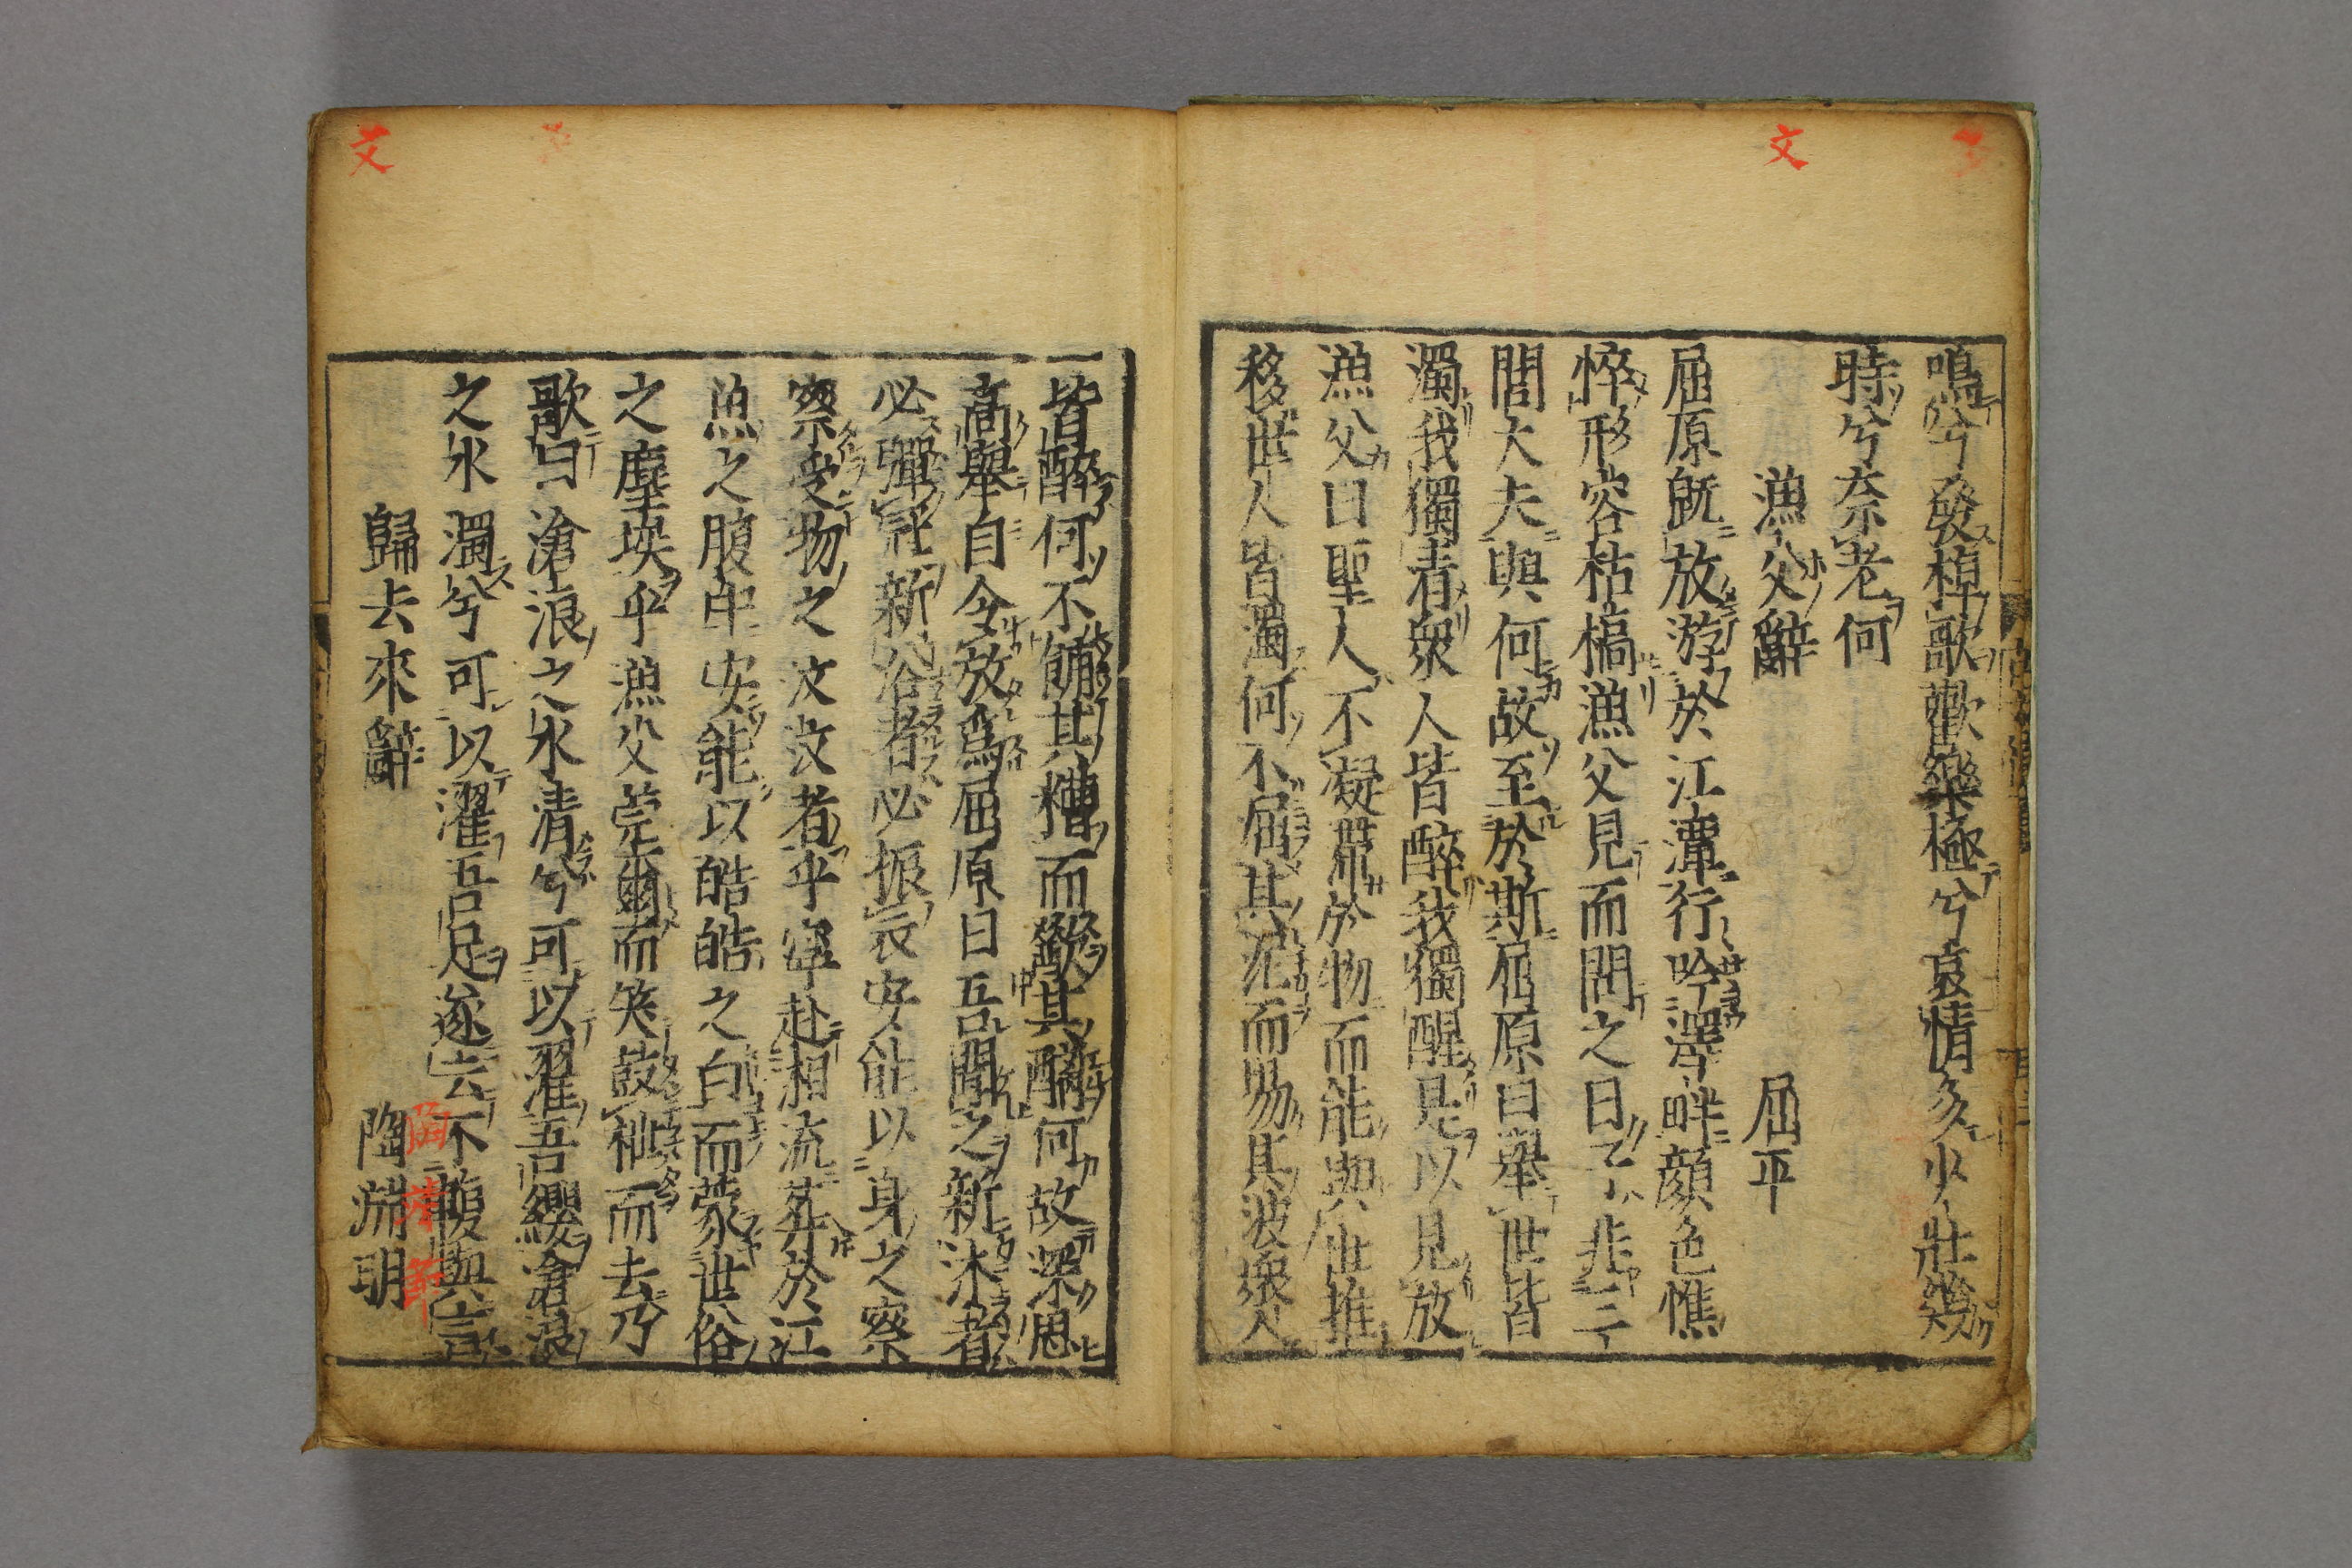 文
鳴兮發棹歌歡樂極兮哀情多少壯幾
時兮奈老何
漁父辭 屈平
屈原既放游於江潭行吟澤畔顔色憔
悴形容枯槁漁父見而問之曰子非三
閭大夫與何故至於斯屈原曰舉世皆
濁我獨清衆人皆醉我獨醒是以見放
漁父曰聖人不凝滯於物而能與世推
移世人皆濁何不淈其泥而揚其波衆人
皆醉何不餔其糟而歠其醨何故深思
高舉自令放爲屈原曰吾聞之新沐者
必彈冠新浴者必振衣安能以身之察
察受物之汶汶者乎寧赴湘流葬於江
魚之腹中安能以皓皓之白而蒙世俗
之塵埃乎漁父莞爾而笑鼓枻而去乃
歌曰滄浪之水清兮可以濯吾纓滄浪
之水濁兮可以濯吾足遂去不複與言
歸去來辭 陶淵明
文